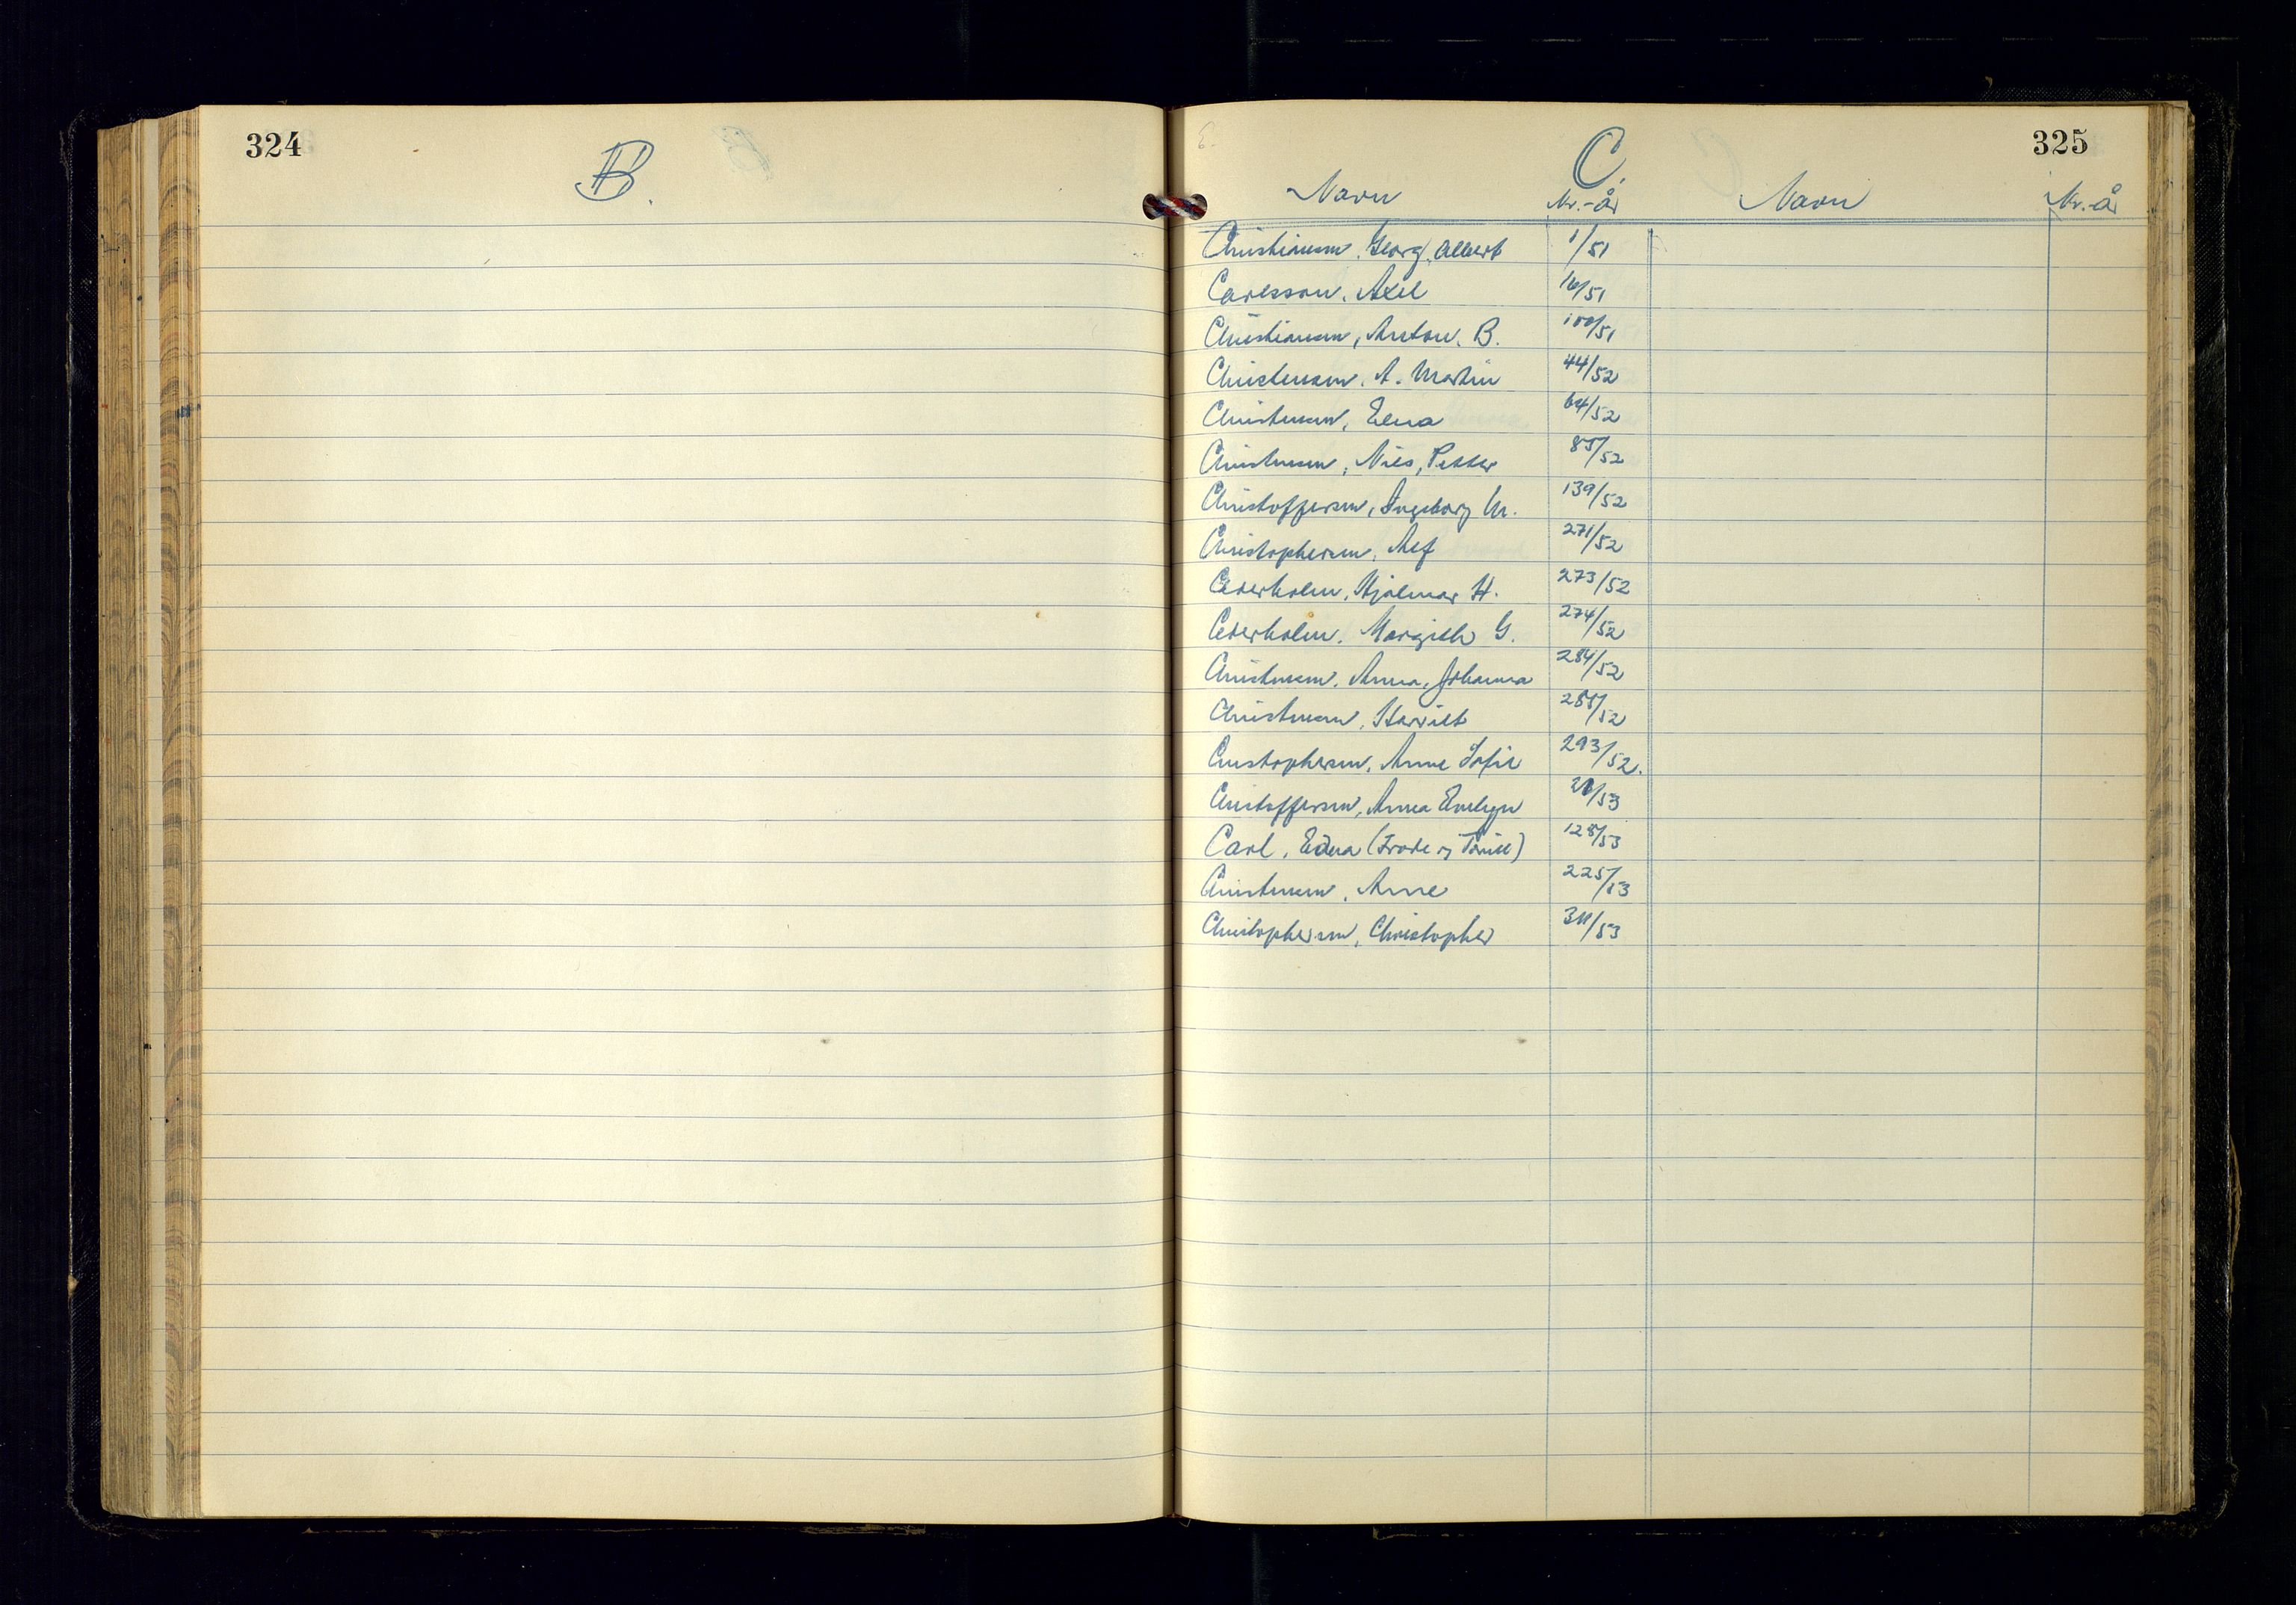 324
B.
325
C.
Navn Nr.-år Navn Nr.-år
Christiansen, Georg, Albert 1/51
Carlsson, Axel 16/51
Christiansen, Anton, B. 100/51
Christensen, A. Martin 44/52
Christensen, Elna 64/52
Christensen, Nils, Petter 85/52
Christoffersen, Ingeborg M. 139/52
Christophersen, Alf 271/52
Cederholm, Hjalmar H. 273/52
Cederholm, Margith G. 274/52
Christensen, Anna, Johanna 284/52
Christensen, Harriet 285/52
Christophersen, Anne Sofie 293/52.
Christoffersen, Anna Evelyn /53
Carl, Edna (Frode og Torill) 128/53
Christensen, Arne 225/53
Christophersen, Christopher 311/53